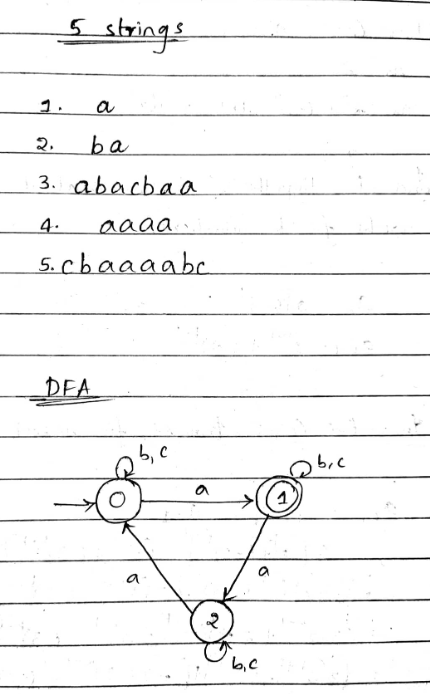 5 strings
1. a
2. ba
3. abacbaa
4. aaaa
5. cbaaaabc
DFA
b,c
b,c
0
a
1
a
a
2
b,c